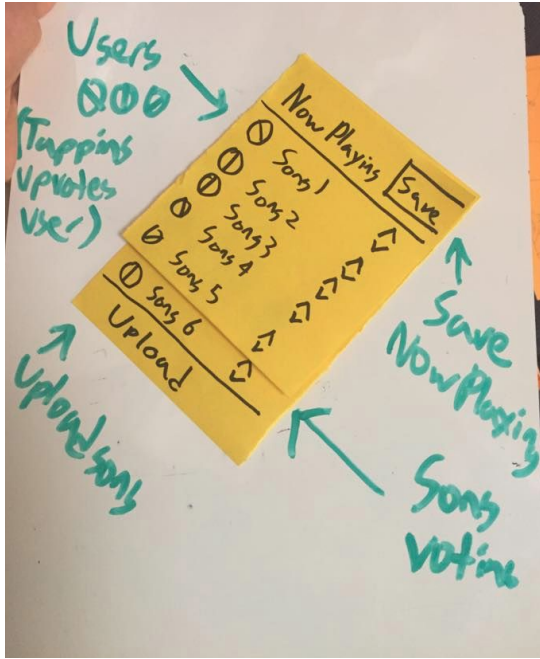 Users
(Tapping
upvotes
user)
Now Playing
Save
Song 1
Song 2
Song 3
Song 4
Song 5
Song 6
Upload
Upload song
Save
Now Playing
Song
Voting